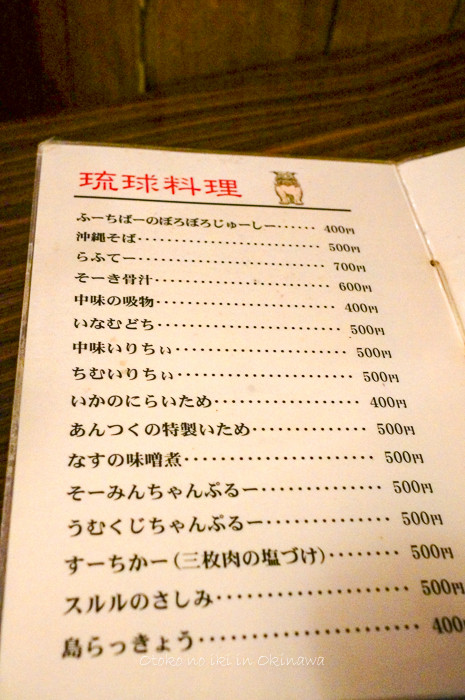 琉球料理
ふーちばーのぼろぼろじゅーしー……400円
沖縄そば……………………500円
らふてー……………………700円
そーき骨汁…………………600円
中味の吸物…………………400円
いなむどち…………………500円
中味いりちぃ………………500円
ちむいりちぃ………………500円
いかのにらいため…………400円
あんつくの特製いため……500円
なすの味噌煮………………500円
そーみんちゃんぷるー……500円
うむくじちゃんぷるー……500円
すーちかー(三枚肉の塩づけ)……500円
スルルのさしみ……………500円
島らっきょう………………400
Otoko no iki in Okinawa